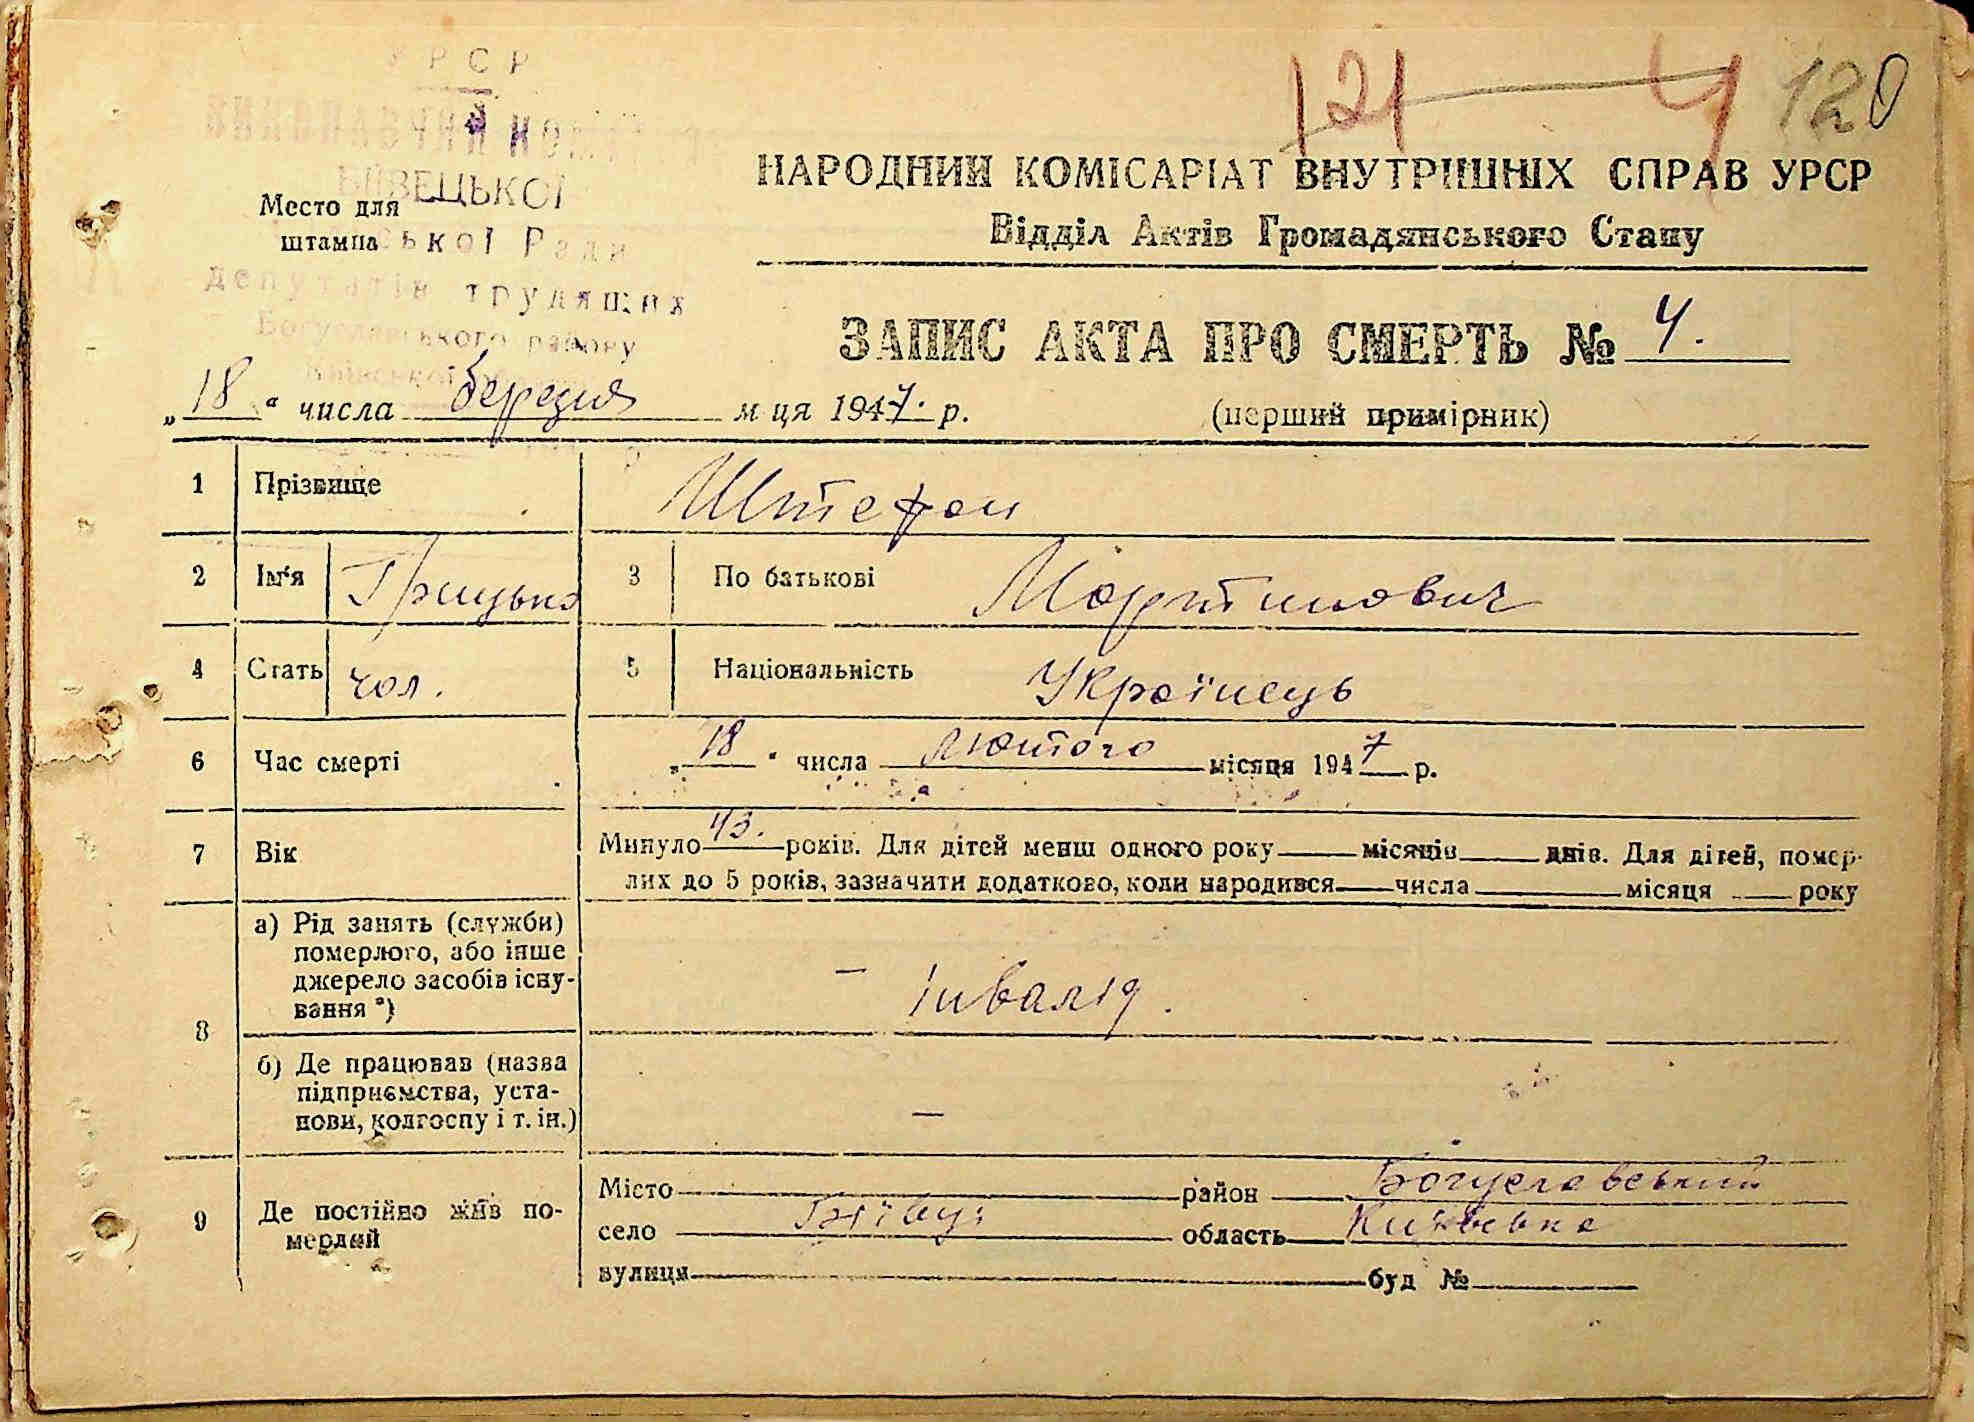 УРСР
121 4 120
ВИКОНАВЧИЙ
БІЇВЕЦЬКОЇ
Место для
штампа
ської Ради
депутатів трудящих
Богуславського району
Київської
НАРОДНИЙ КОМІСАРІАТ ВНУТРІШНІХ СПРАВ УРСР
Відділ Актів Громадянського Стану
ЗАПИС АКТА ПРО СМЕРТЬ № 4.
„18“ числа березня м-ця 1947. р.
(перший примірник)
1 Прізвище Штефан
2 Ім'я Грицько 3 По батькові Мартинович
4 Стать чол. 5 Національність Українець
6 Час смерті „18“ числа лютого місяця 1947 р.
7 Вік Минуло 43. років. Для дітей менш одного року місяців днів. Для дітей, помер-
лих до 5 років, зазначити додатково, коли народився числа місяця року
8 а) Рід занять (служби)
померлого, або інше
джерело засобів існу-
вання *)
— Інвалід.
б) Де працював (назва
підприємства, уста-
нови, колгоспу і т. ін.)
—
9 Де постійно жив по-
мерлий
Місто район Богуславський
село Біївці область Київська
вулиця буд №